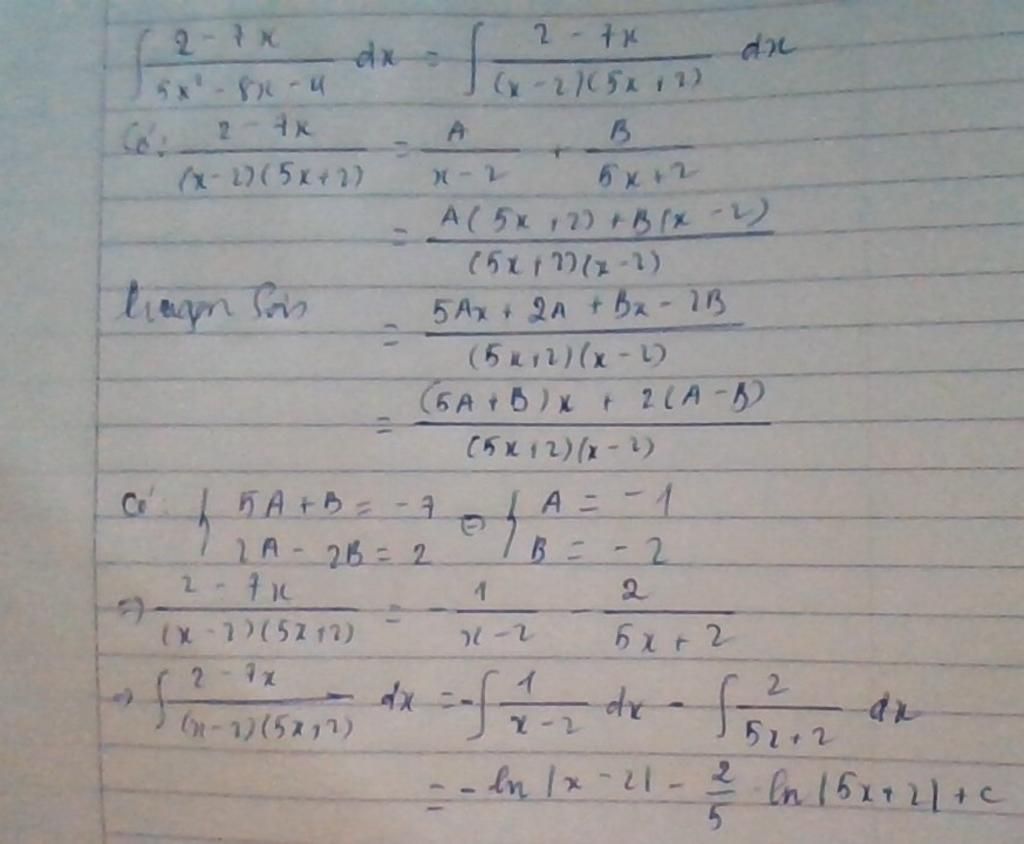 ∫ (2 - 7x)/(5x² - 8x - 4) dx = ∫ (2 - 7x)/((x - 2)(5x + 2)) dx
Có: (2 - 7x)/((x - 2)(5x + 2)) = A/(x - 2) + B/(5x + 2)
= (A(5x + 2) + B(x - 2))/((5x + 2)(x - 2))
= (5Ax + 2A + Bx - 2B)/((5x + 2)(x - 2))
= ((5A + B)x + 2(A - B))/((5x + 2)(x - 2))
Có: { 5A + B = -7 ⇔ { A = -1
2A - 2B = 2 B = -2
⇒ (2 - 7x)/((x - 2)(5x + 2)) = - 1/(x - 2) - 2/(5x + 2)
⇒ ∫ (2 - 7x)/((x - 2)(5x + 2)) dx = - ∫ 1/(x - 2) dx - ∫ 2/(5x + 2) dx
= - ln |x - 2| - 2/5 . ln |5x + 2| + C